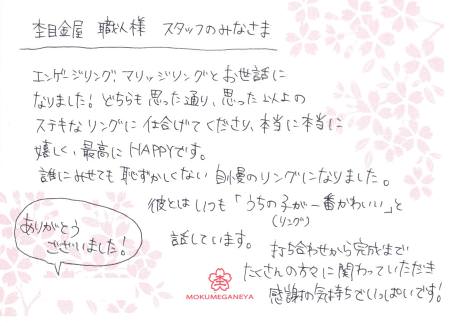 杢目金屋 職人様 スタッフのみなさま
エンゲージリング マリッジリングとお世話に
なりました！どちらも思った通り、思った以上の
ステキなリングに仕上げてくださり、本当に本当に
嬉しく、最高にHAPPYです。
誰にみせても恥ずかしくない自慢のリングになりました。
彼とはいつも「うちの子が一番かわいい」と
(リング)
話しています。
打ち合わせから完成まで
たくさんの方々に関わっていただき
感謝の気持ちでいっぱいです！
ありがとう
ございました！
MOKUMEGANEYA